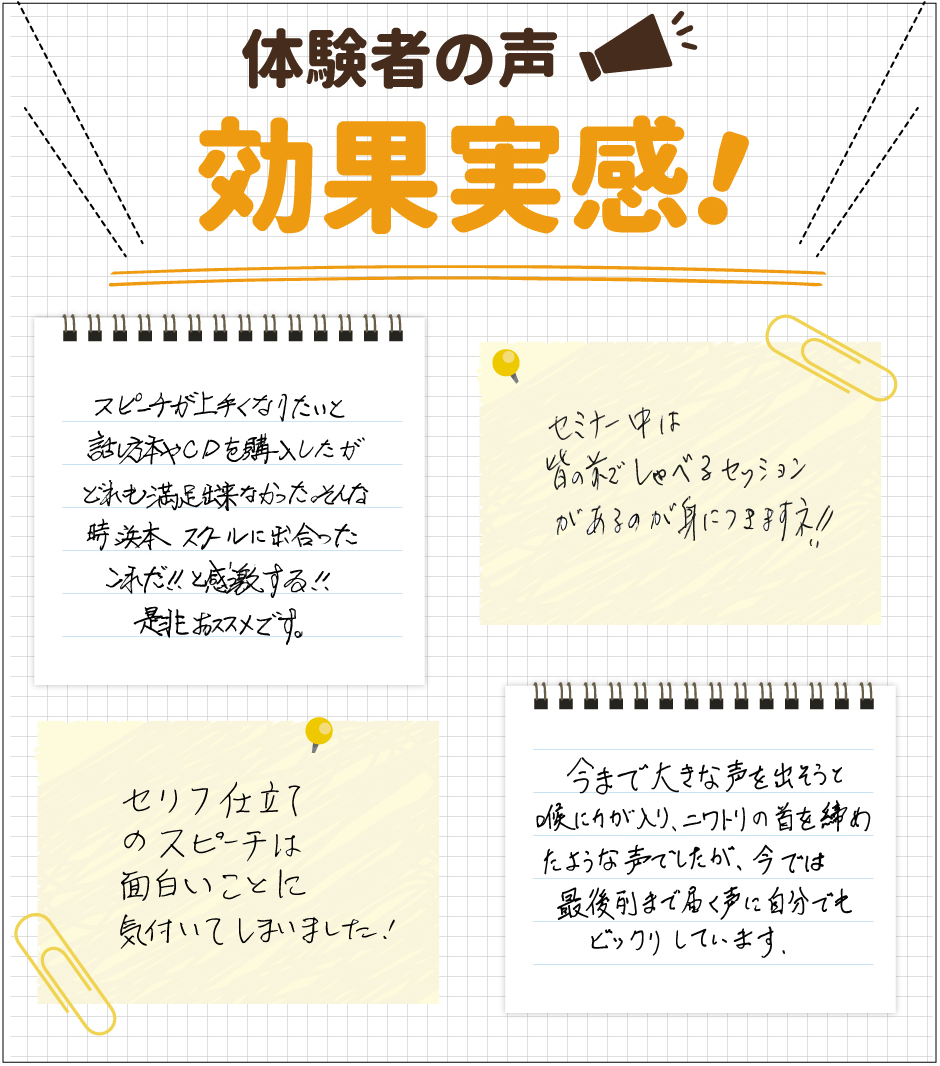 体験者の声
効果実感!
スピーチが上手くなりたいと
話し方本やCDを購入したが
どれも満足出来なかった。そんな
時浜本スクールに出合った
これだ!!と感激する!!
是非おススメです。
セミナー中は
皆の前でしゃべるセッション
があるのが身につきますネ!!
セリフ仕立て
のスピーチは
面白いことに
気付いてしまいました!
今まで大きな声を出そうと
喉に力が入り、ニワトリの首を締め
たような声でしたが、今では
最後列まで届く声に自分でも
ビックリしています.